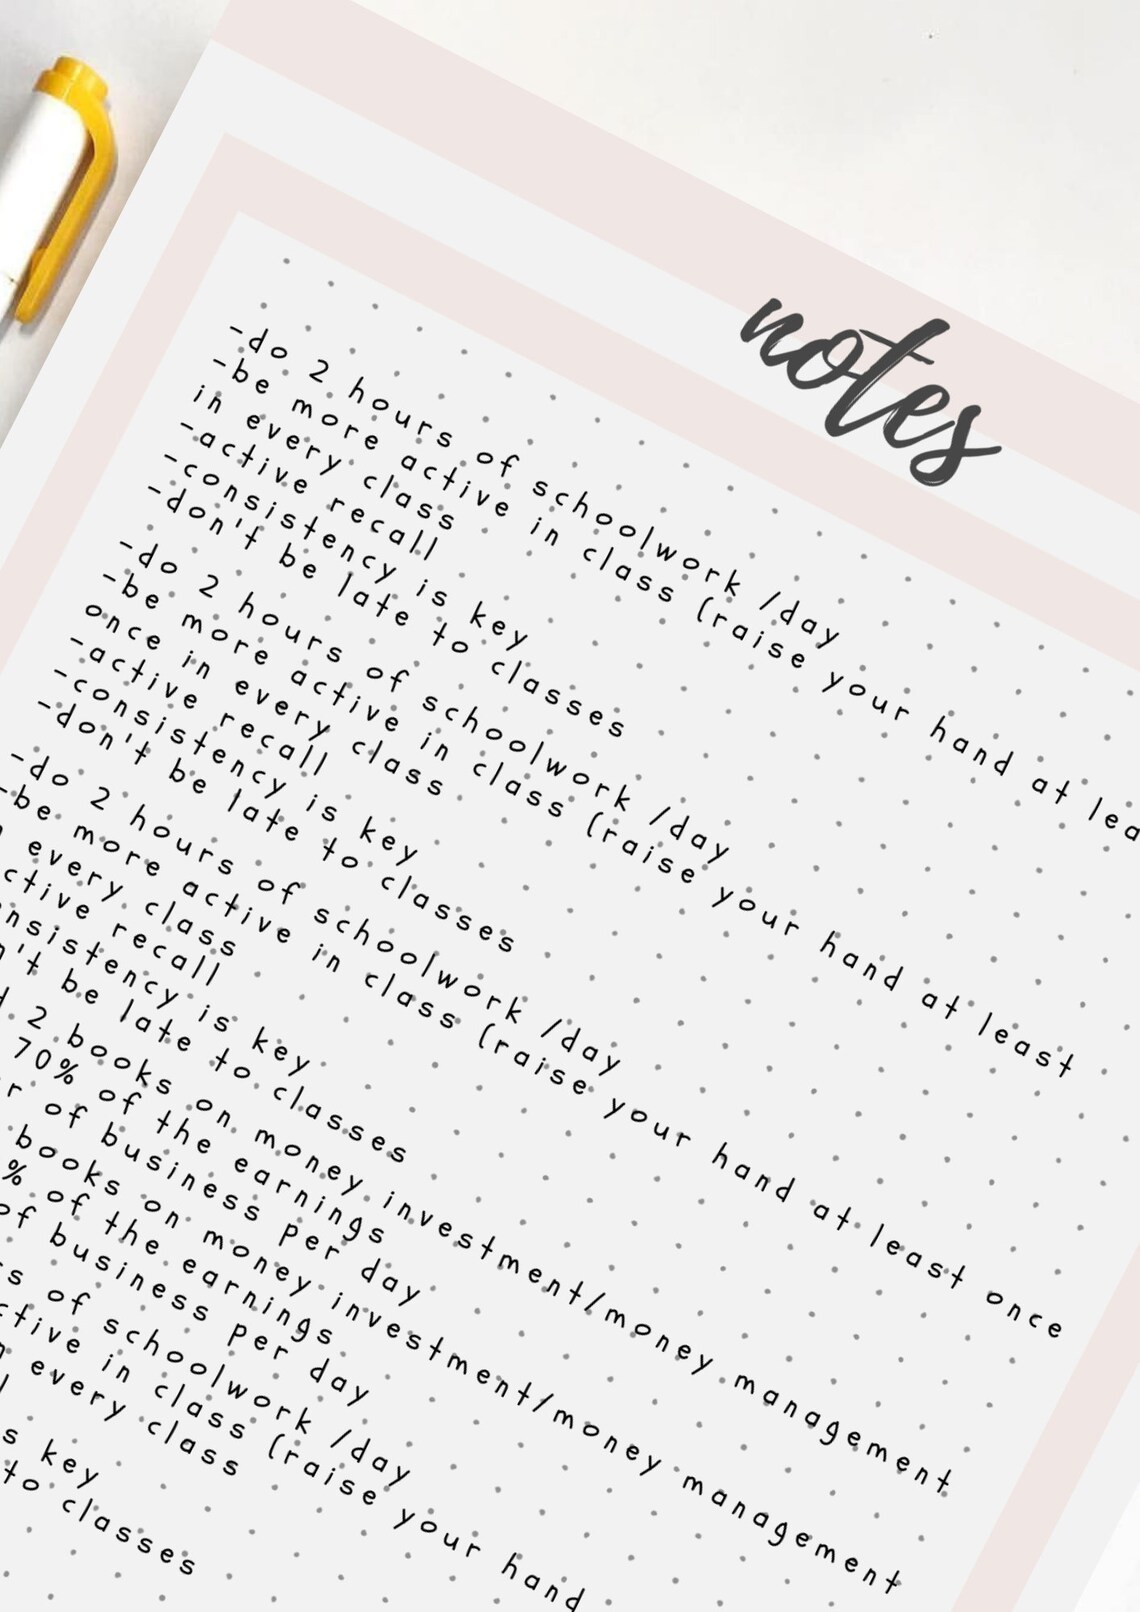 notes
-do 2 hours of schoolwork /day
-be more active in class (raise your hand at lea
in every class
-active recall
-consistency is key
-don't be late to classes
-do 2 hours of schoolwork /day
-be more active in class (raise your hand at least
once in every class
-active recall
-consistency is key
-don't be late to classes
-do 2 hours of schoolwork /day
-be more active in class (raise your hand at least once
every class
ctive recall
nsistency is key
n't be late to classes
2 books on money investment/money management
70% of the earnings
r of business per day
books on money investment/money management
% of the earnings
of business per day
s of schoolwork /day
ctive in class (raise your hand
every class
s key
to classes